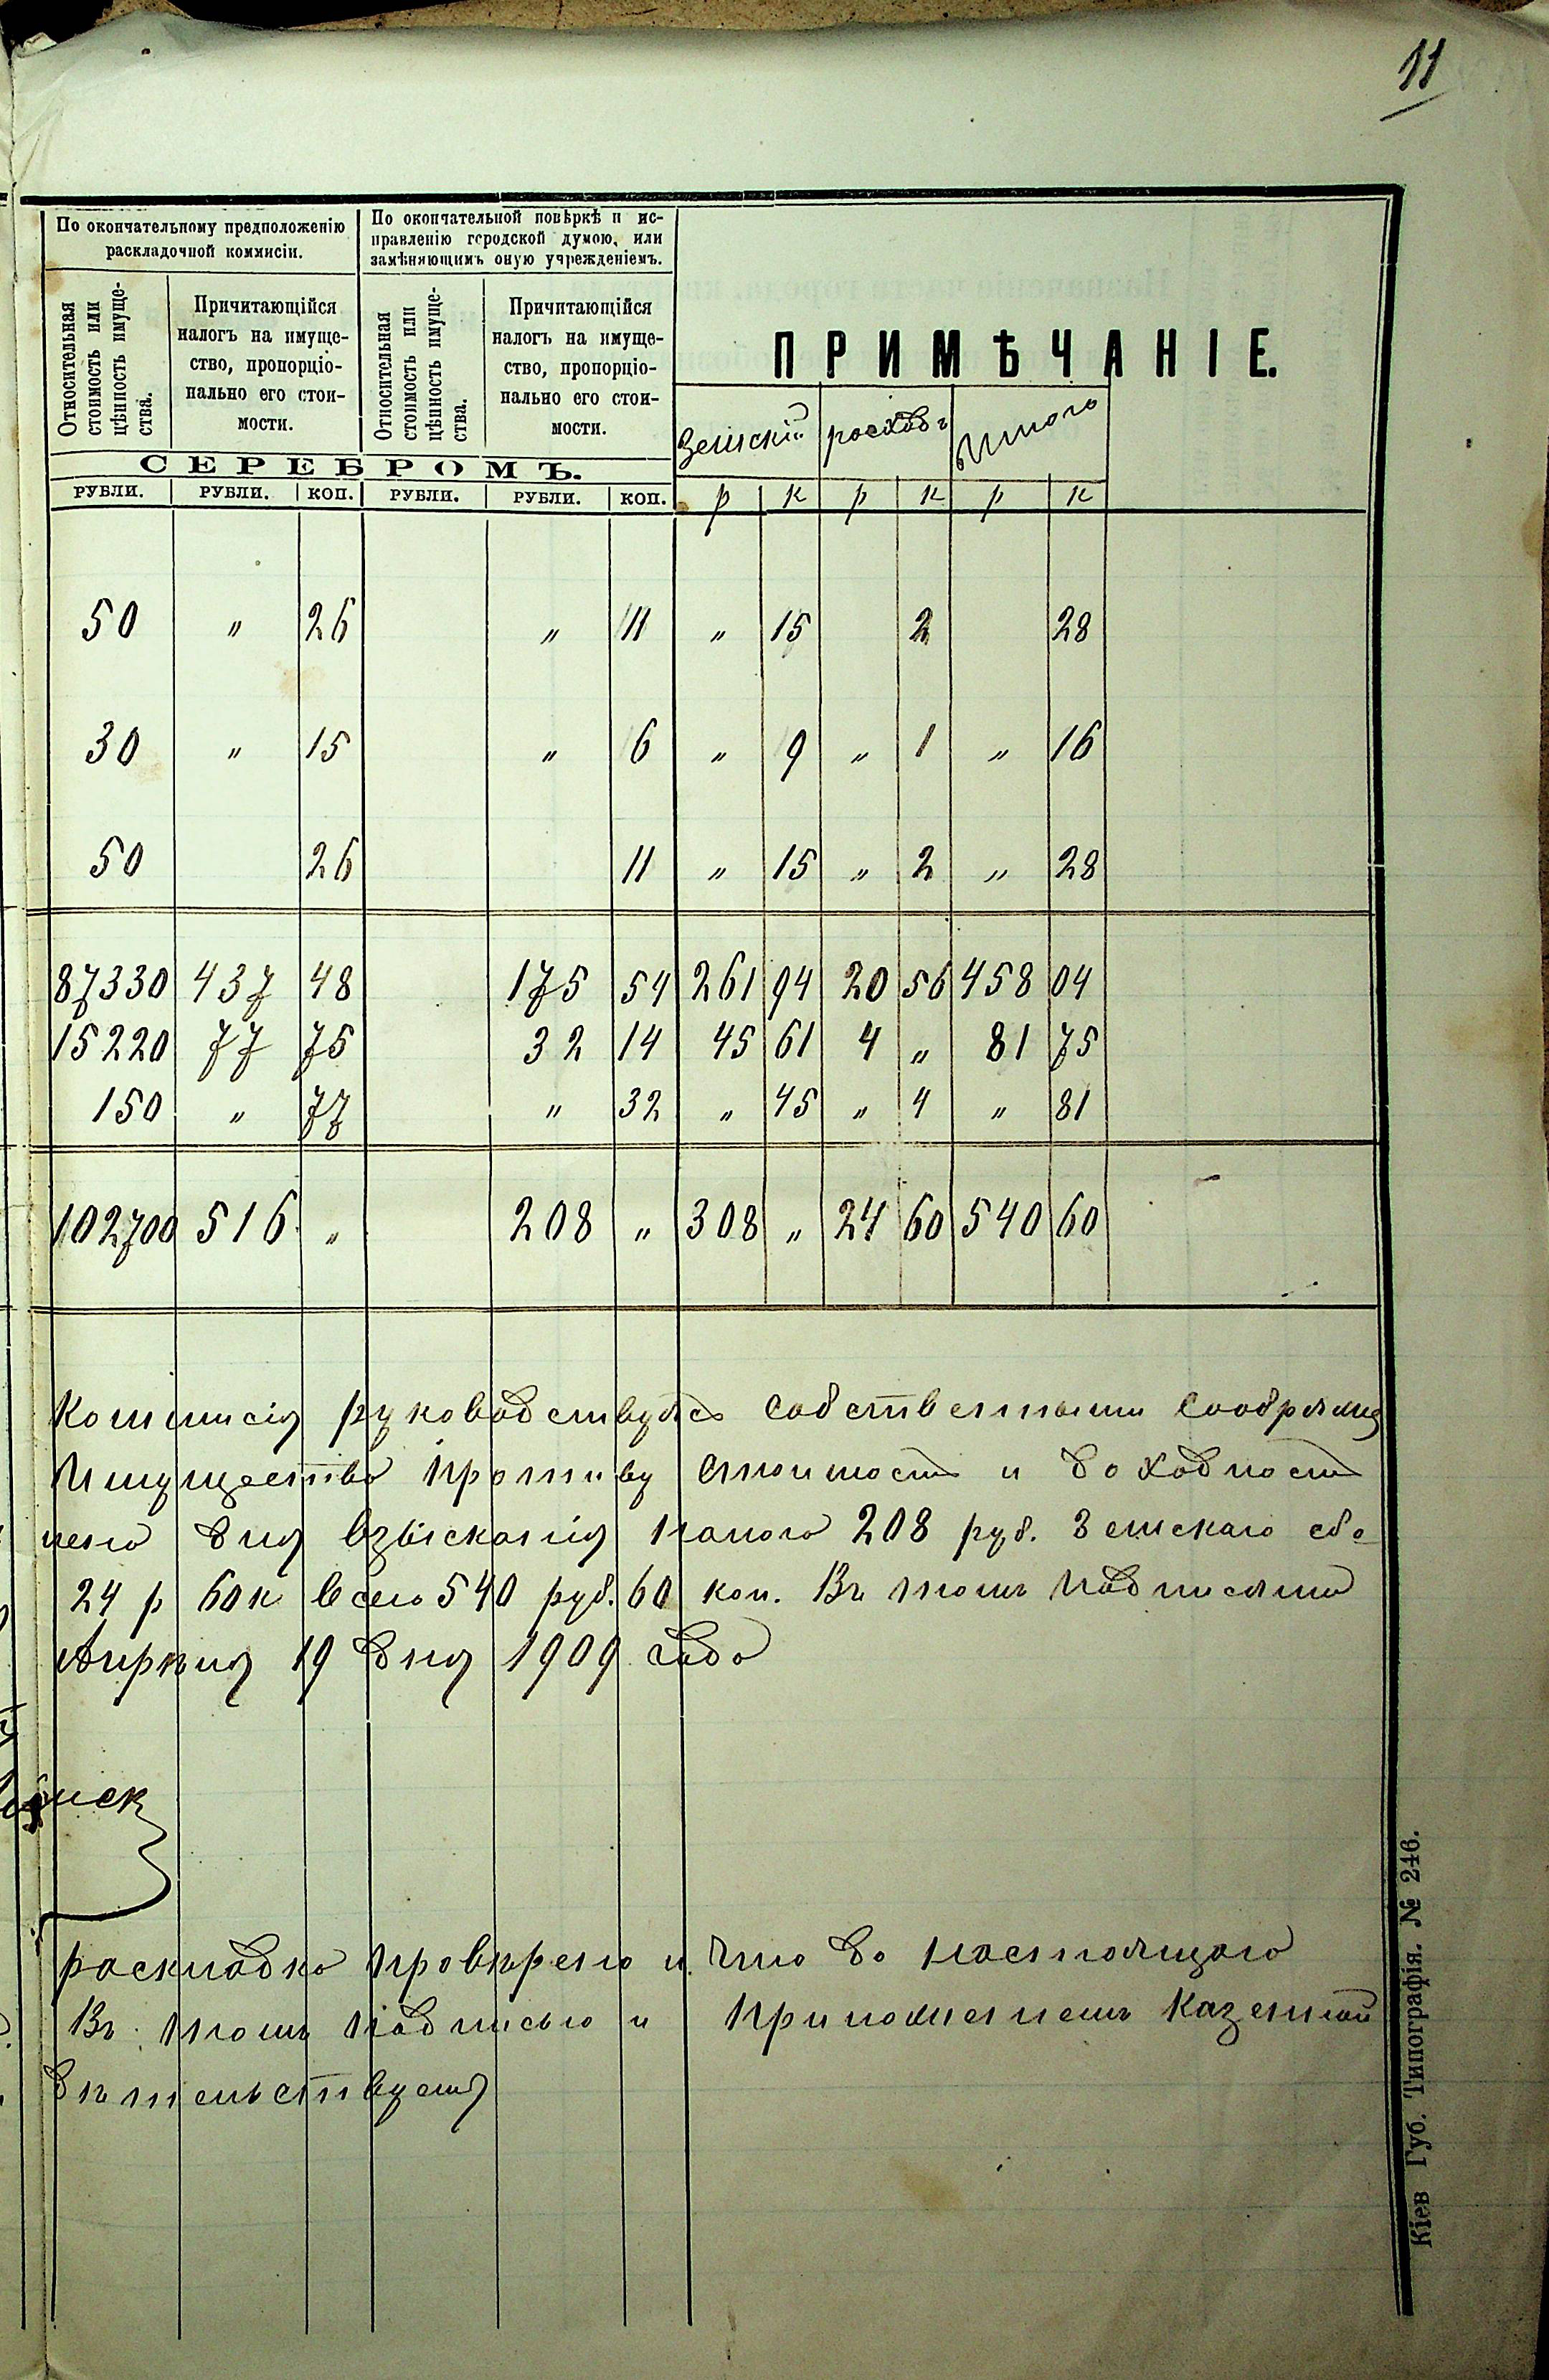 11
По окончательному предположенію
раскладочной коммисіи.
По окончательной повѣркѣ и ис-
правленію городской думою, или
замѣняющимъ оную учрежденіемъ.
Относительная
стоимость или
цѣнность имуще-
ства.
Причитающійся
налогъ на имуще-
ство, пропорціо-
нально его стои-
мости.
Относительная
стоимость или
цѣнность имуще-
ства.
Причитающійся
налогъ на имуще-
ство, пропорціо-
нально его стои-
мости.
ПРИМѢЧАНІЕ.
Земскій расходъ Итого
СЕРЕБРОМЪ.
РУБЛИ. РУБЛИ. КОП. РУБЛИ. РУБЛИ. КОП. р к р к р к
50 " 26 " 11 " 15 2 28
30 " 15 " 6 " 9 " 1 " 16
50 26 11 " 15 " 2 " 28
87330 437 48 175 54 261 94 20 56 458 04
15220 77 75 32 14 45 61 4 " 81 75
150 " 77 " 32 " 45 " 4 " 81
102700 516 " 208 " 308 " 24 60 540 60
Коммисія руководствуясь собственными
Имущество противу стоимости и доходности
него для взысканія налога 208 руб. Земскаго сбо
24 р 60 к всего 540 руб. 60 коп. Въ томъ подписами
Апрѣля 19 дня 1909 года
раскладка провѣрена и что до настоящаго
Въ томъ подписью и приложеніемъ Казенной
дѣтельствуетъ
Кіев Губ. Типографія. № 246.